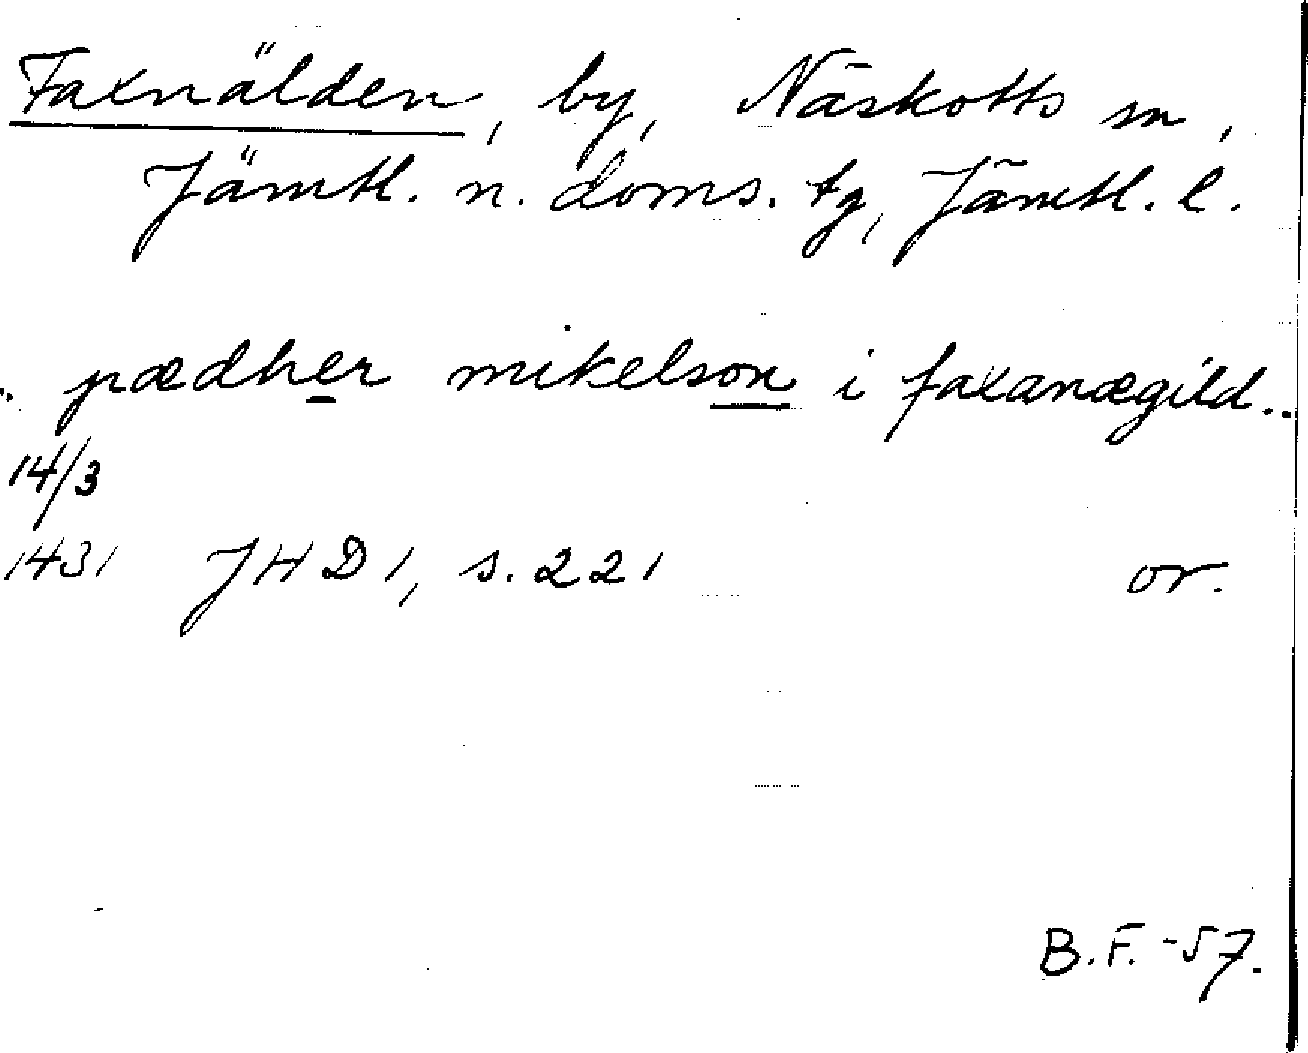 Faxnälden, by, Näskotts sn,
Jämtl. n. doms. tg, Jämtl. l.
.. pædher mikelson i faxanægild..
14/3
1431 JHD 1, s. 221 or.
B.F. -57.